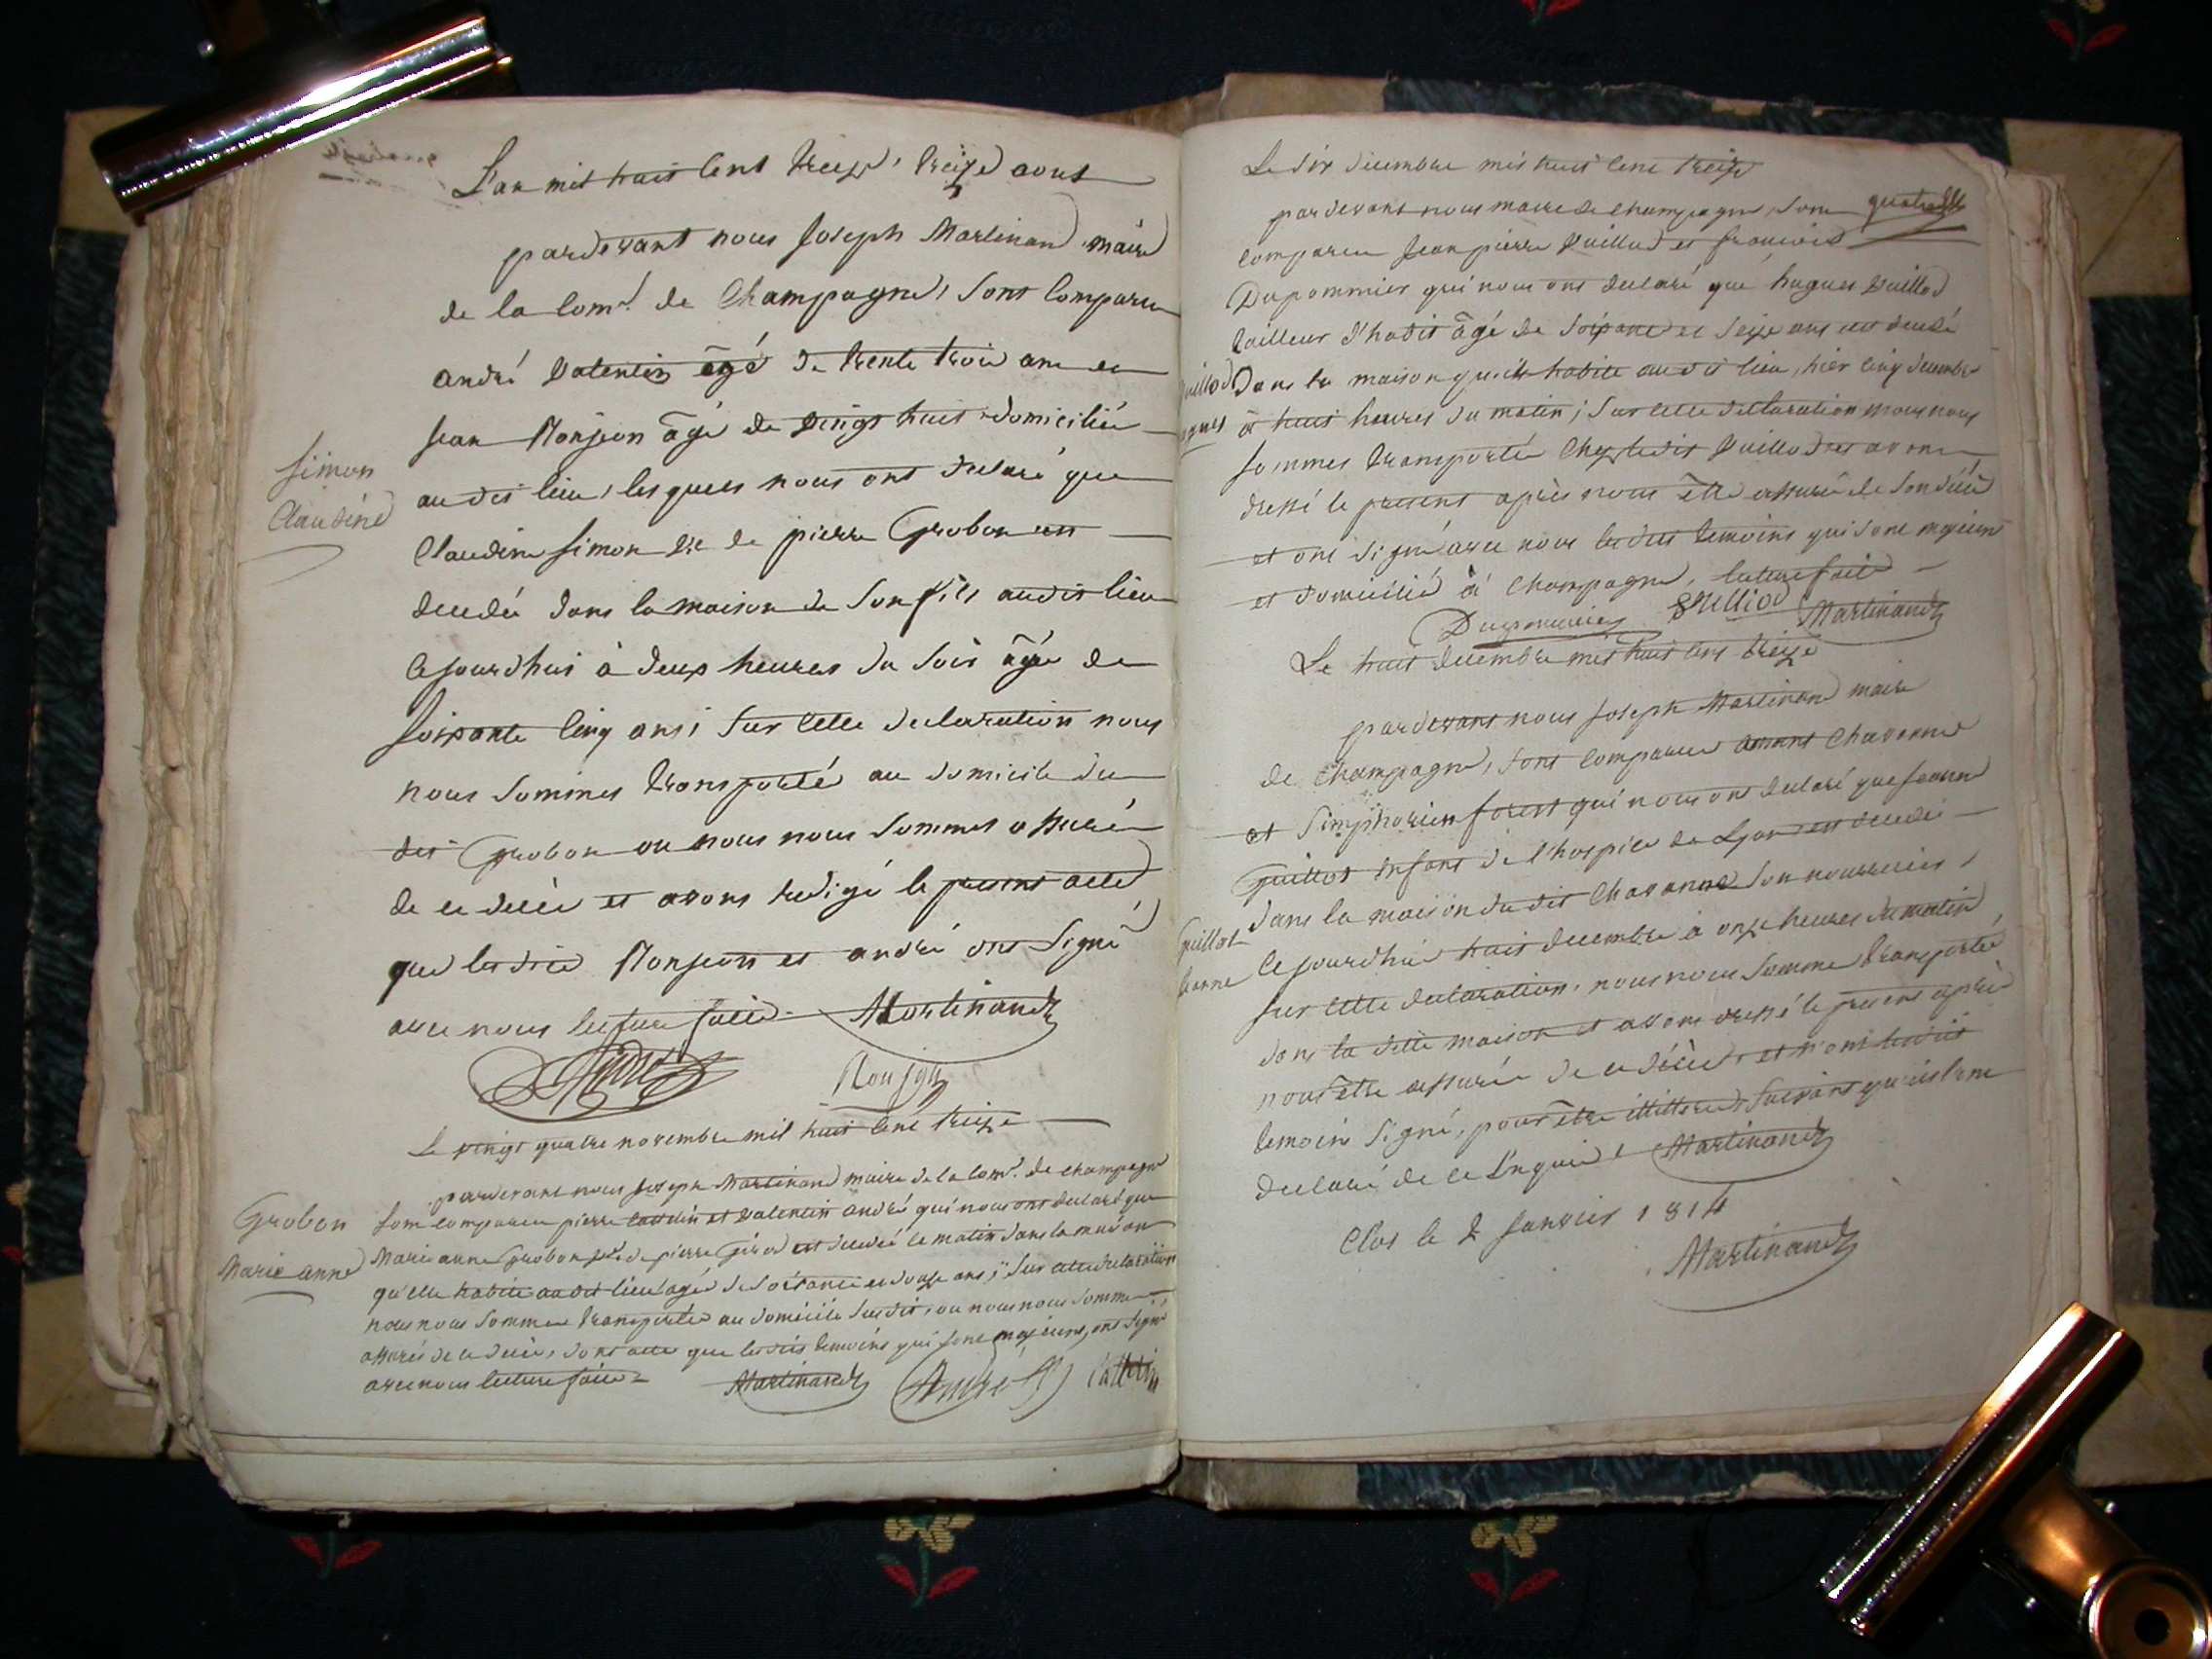 L'an mil huit cent treize, treize aout
pardevant nous Joseph Martinand maire
de la comne de Champagne, sont comparu
andré Valentin agé de trente trois ans et
jean Monjeon âgé de vingt huit domicilié
au dit lieu, lesquels nous ont declaré que
Simon
Claudine
Claudine Simon vve de pierre Grobon est
decedée dans la maison de son fils audit lieu
cejourdhui à deux heures du soir âgée de
soixante cinq ans; sur cette declaration nous
nous sommes transporté au domicile du
dit Grobon ou nous nous sommes assuré
de ce décès et avons redigé le present acte
que lesdits Monjeon et andré ont signé
avec nous lecture faite. Martinand
André
Le vingt quatre novembre mil huit cent treize
pardevant nous Joseph Martinand maire de la comne de champagne
Grobon
Marie anne
sont comparu pierre et valentin andré qui nous ont declaré que
Marie anne Grobon de pierre est decedée ce matin dans la maison
qu'elle habite audit lieu agée de soixante et douze ans; sur cette declaration
nous nous sommes transporté au domicile susdit, ou nous nous sommes
assurés de ce décès, dont acte que lesdits temoins qui sont majeurs, ont signé
avec nous lecture faite Martinand André
Le six decembre mil huit cent treize
pardevant nous maire de champagne, sont
comparu Jean pierre Vuillod et francois
Dupommier qui nous ont declaré que hugues Vuillod
tailleur d'habit âgé de soixante et seize ans est decedé
dans la maison qu'il habite audit lieu, hier cinq decembre
à huit heures du matin; sur cette declaration nous nous
sommes transporté chez ledit Vuillod et avons
dressé le present après nous être assuré de son décès
et ont signé avec nous lesdits temoins qui sont majeurs
et domicilié à Champagne, lecture faite
Dupommier Vuilliod Martinand
Le huit decembre mil huit cent treize
pardevant nous Joseph Martinand maire
de Champagne, sont comparu Chavanne
et Simphorien forest qui nous ont declaré que jeanne
Guillot enfant de l'hospice de Lyon est decedée
dans la maison dudit Chavanne son nourricier,
Guillot
Jeanne
cejourdhui huit decembre à onze heures du matin,
sur cette declaration, nous nous sommes transporté
dans la dite maison et avons dressé le present après
nous être assuré de ce décès, et n'ont lesdits
temoins signé, pour être illittérés suivant qu'ils l'ont
declaré de ce enquis, Martinand
Clos le 2 Janvier 1814
Martinand